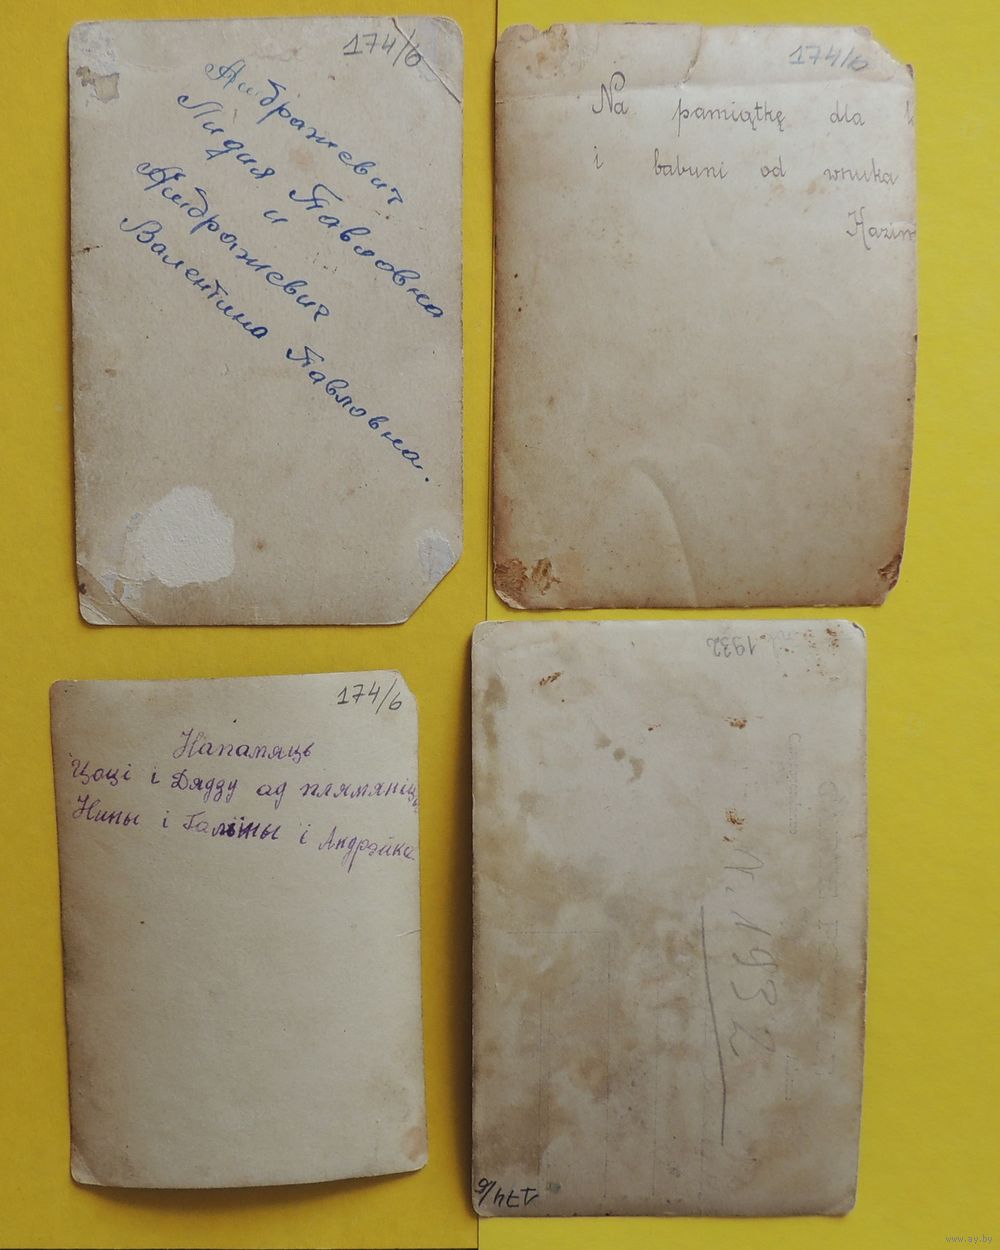 174/6
Амбражевич
Лидия Павловна
и
Амбражевич
Валентина Павловна.
174/6
Na pamiątkę dla
i babuni od wnuka
Kazim
174/6
Напамяць
Цоці і Дядзу ад плямяніцы
Нины і Галіны і Андрэйка
1932
1932
174/6
www.ay.by